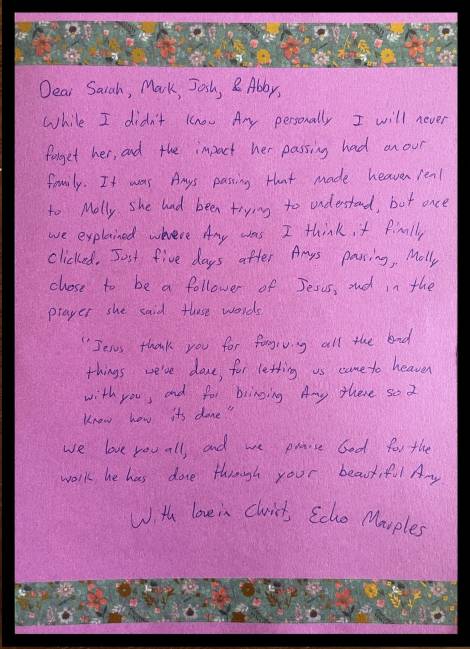 Dear Sarah, Mark, Josh, & Abby,
While I didn't know Amy personally I will never
forget her, and the impact her passing had on our
family. It was Amys passing that made heaven real
to Molly. She had been trying to understand, but once
we explained where Amy was I think it finally
clicked. Just five days after Amys passing, Molly
chose to be a follower of Jesus, and in the
prayer she said these words.
"Jesus thank you for forgiving all the bad
things we've done, for letting us come to heaven
with you, and for bringing Amy there so I
know how its done"
We love you all, and we praise God for the
work he has done through your beautiful Amy
With love in Christ, Echo Marples